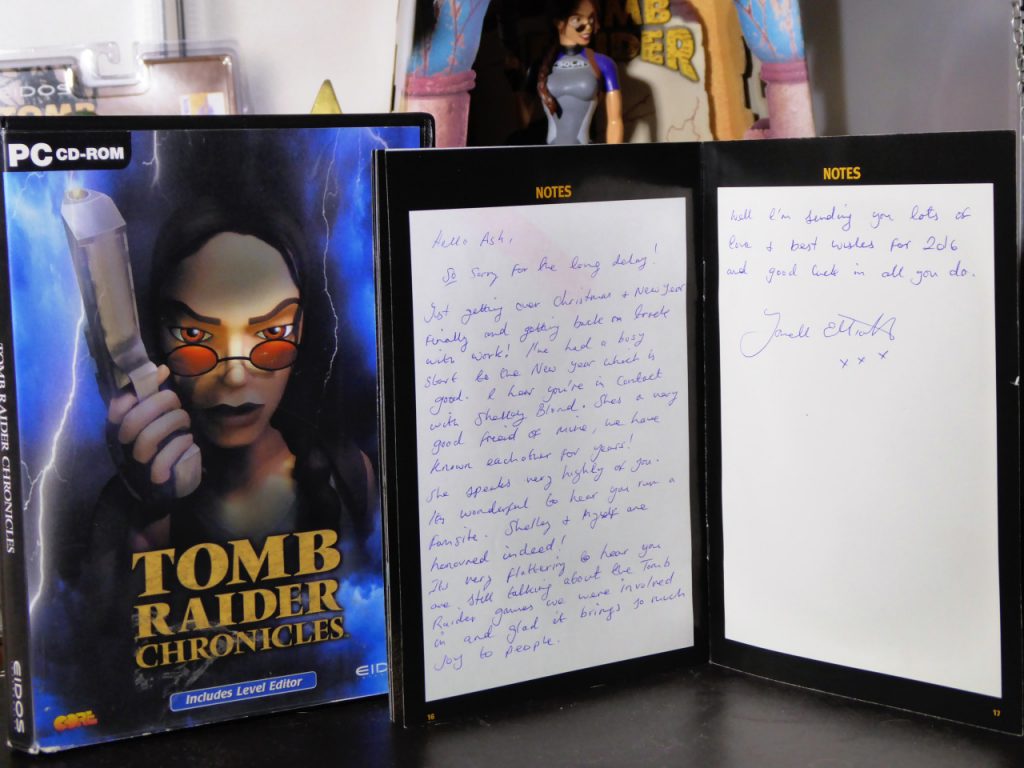 EIDOS
TOMB
TOMB
RAIDER
SOLA
PC CD-ROM
TOMB RAIDER CHRONICLES
EIDOS
TOMB
RAIDER
CHRONICLES
Includes Level Editor
CORE
EID
NOTES
Hello Ash,
So Sorry for the long delay!
Just getting over Christmas + New Year
Finally and getting back on track
with work! I've had a busy
Start to the New Year which is
good. I hear you're in contact
with Shelley Blond. She's a very
good freind of mine, we have
known eachother for years!
She speaks very highly of you.
Its wonderful to hear you run a
fansite. Shelley + Myself are
honoured indeed!
Its very flattering to hear you
are still talking about the Tomb
Raider games we were involved
in and glad it brings so much
Joy to people.
16
NOTES
Well I'm sending you lots of
love + best wishes for 2016
and good luck in all you do.
Jonell Elliott
x x x
17